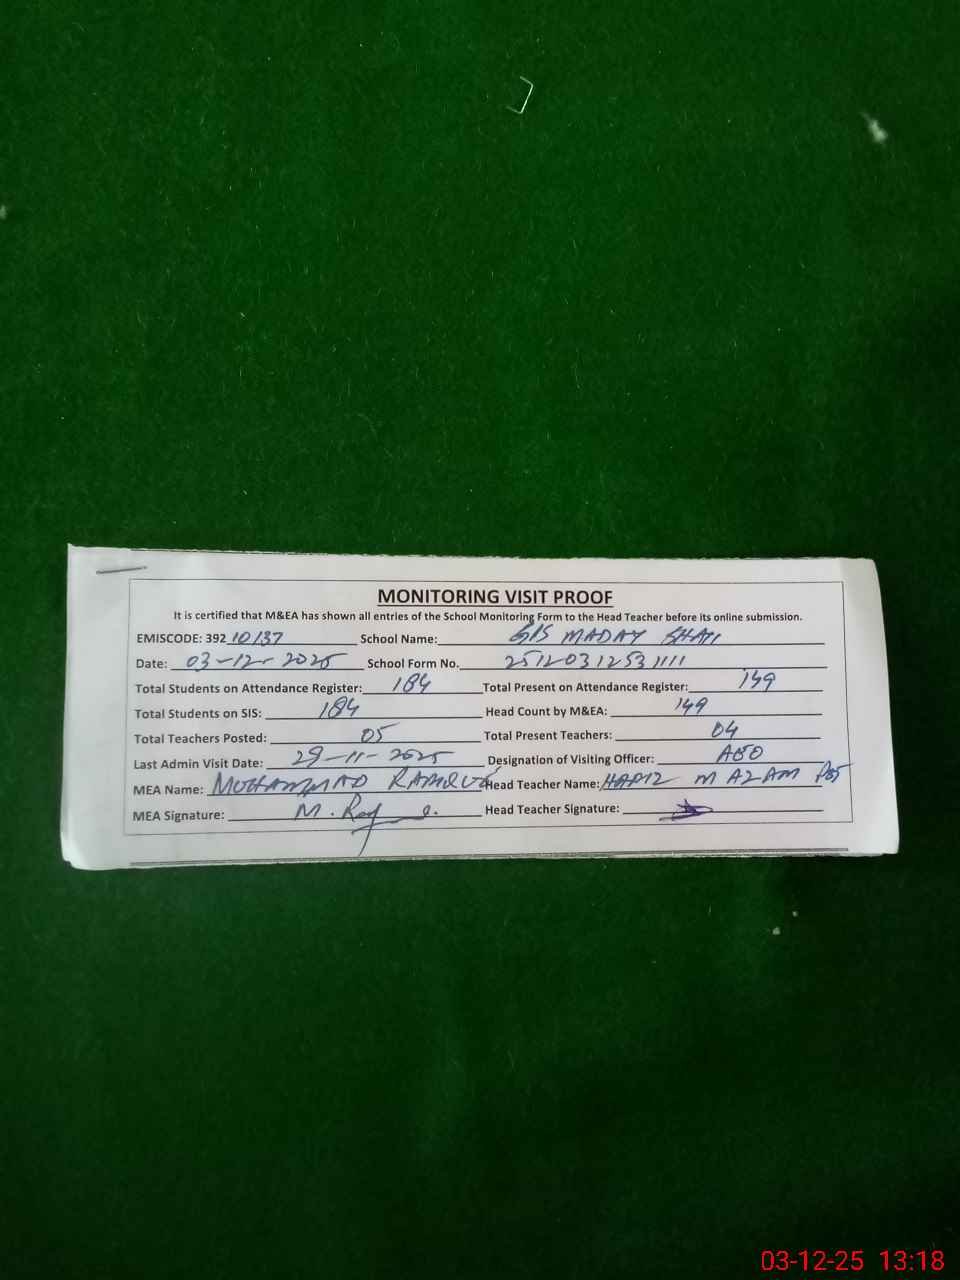 MONITORING VISIT PROOF
It is certified that M&EA has shown all entries of the School Monitoring Form to the Head Teacher before its online submission.
EMISCODE: 392 10137 School Name: MADAY SHAH
Date: 03-12-2025 School Form No. 25120312531111
Total Students on Attendance Register: 184 Total Present on Attendance Register: 149
Total Students on SIS: 184 Head Count by M&EA: 149
Total Teachers Posted: 05 Total Present Teachers: 04
Last Admin Visit Date: 29-11-2025 Designation of Visiting Officer: AEO
MEA Name: MUHAMMAD Head Teacher Name: M AZAM
MEA Signature: M. Head Teacher Signature:
03-12-25 13:18